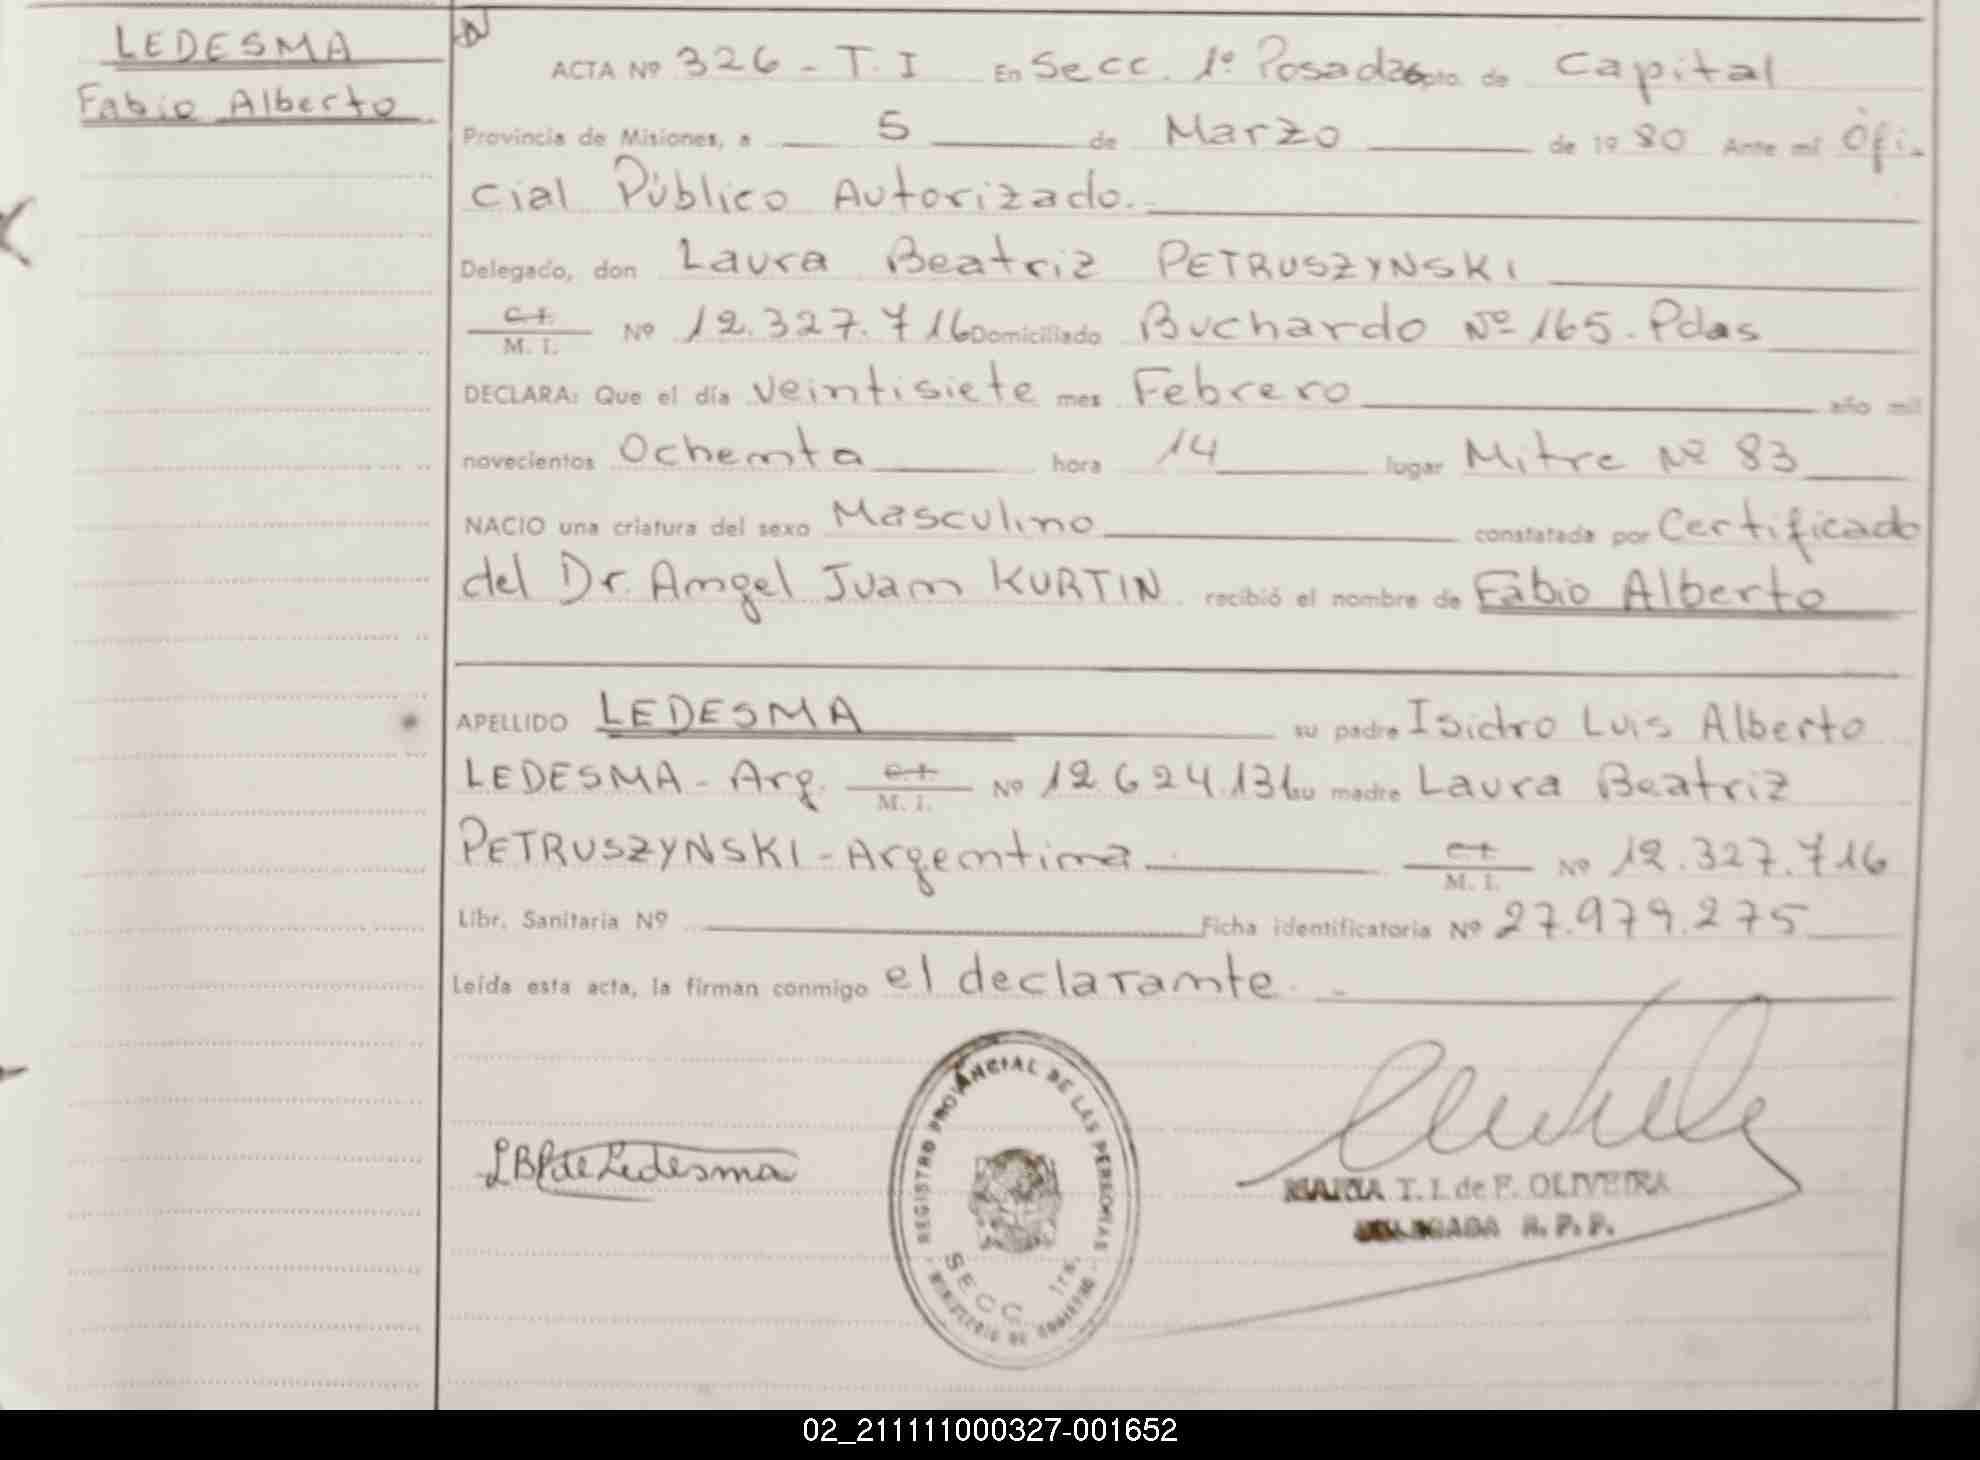 LEDESMA
Fabio Alberto
ACTA Nº 326 - T. I En Secc. 1º Posadas Dpto. de Capital
Provincia de Misiones, a 5 de Marzo de 1980 Ante mí Ofi-
cial Público Autorizado.
Delegado, don Laura Beatriz PETRUSZYNSKI
C.I. M. I. Nº 12.327.716 Domiciliado Buchardo Nº 165. Pdas
DECLARA: Que el día veintisiete mes Febrero año mil
novecientos Ochenta hora 14 lugar Mitre Nº 83
NACIO una criatura del sexo Masculino constatada por Certificado
del Dr. Angel Juan KURTIN recibió el nombre de Fabio Alberto
APELLIDO LEDESMA su padre Isidro Luis Alberto
LEDESMA - Arg. C.I. M. I. Nº 12.624.131 su madre Laura Beatriz
PETRUSZYNSKI - Argentina C.I. M. I. Nº 12.327.716
Libr. Sanitaria Nº Ficha identificatoria Nº 27.979.275
Leída esta acta, la firman conmigo el declarante.
LBP de Ledesma
REGISTRO PROVINCIAL DE LAS PERSONAS
SECC. 1ra.
MINISTERIO DE GOBIERNO
MARIA T. I. de F. OLIVEIRA
DELEGADA R. P. P.
02_211111000327-001652